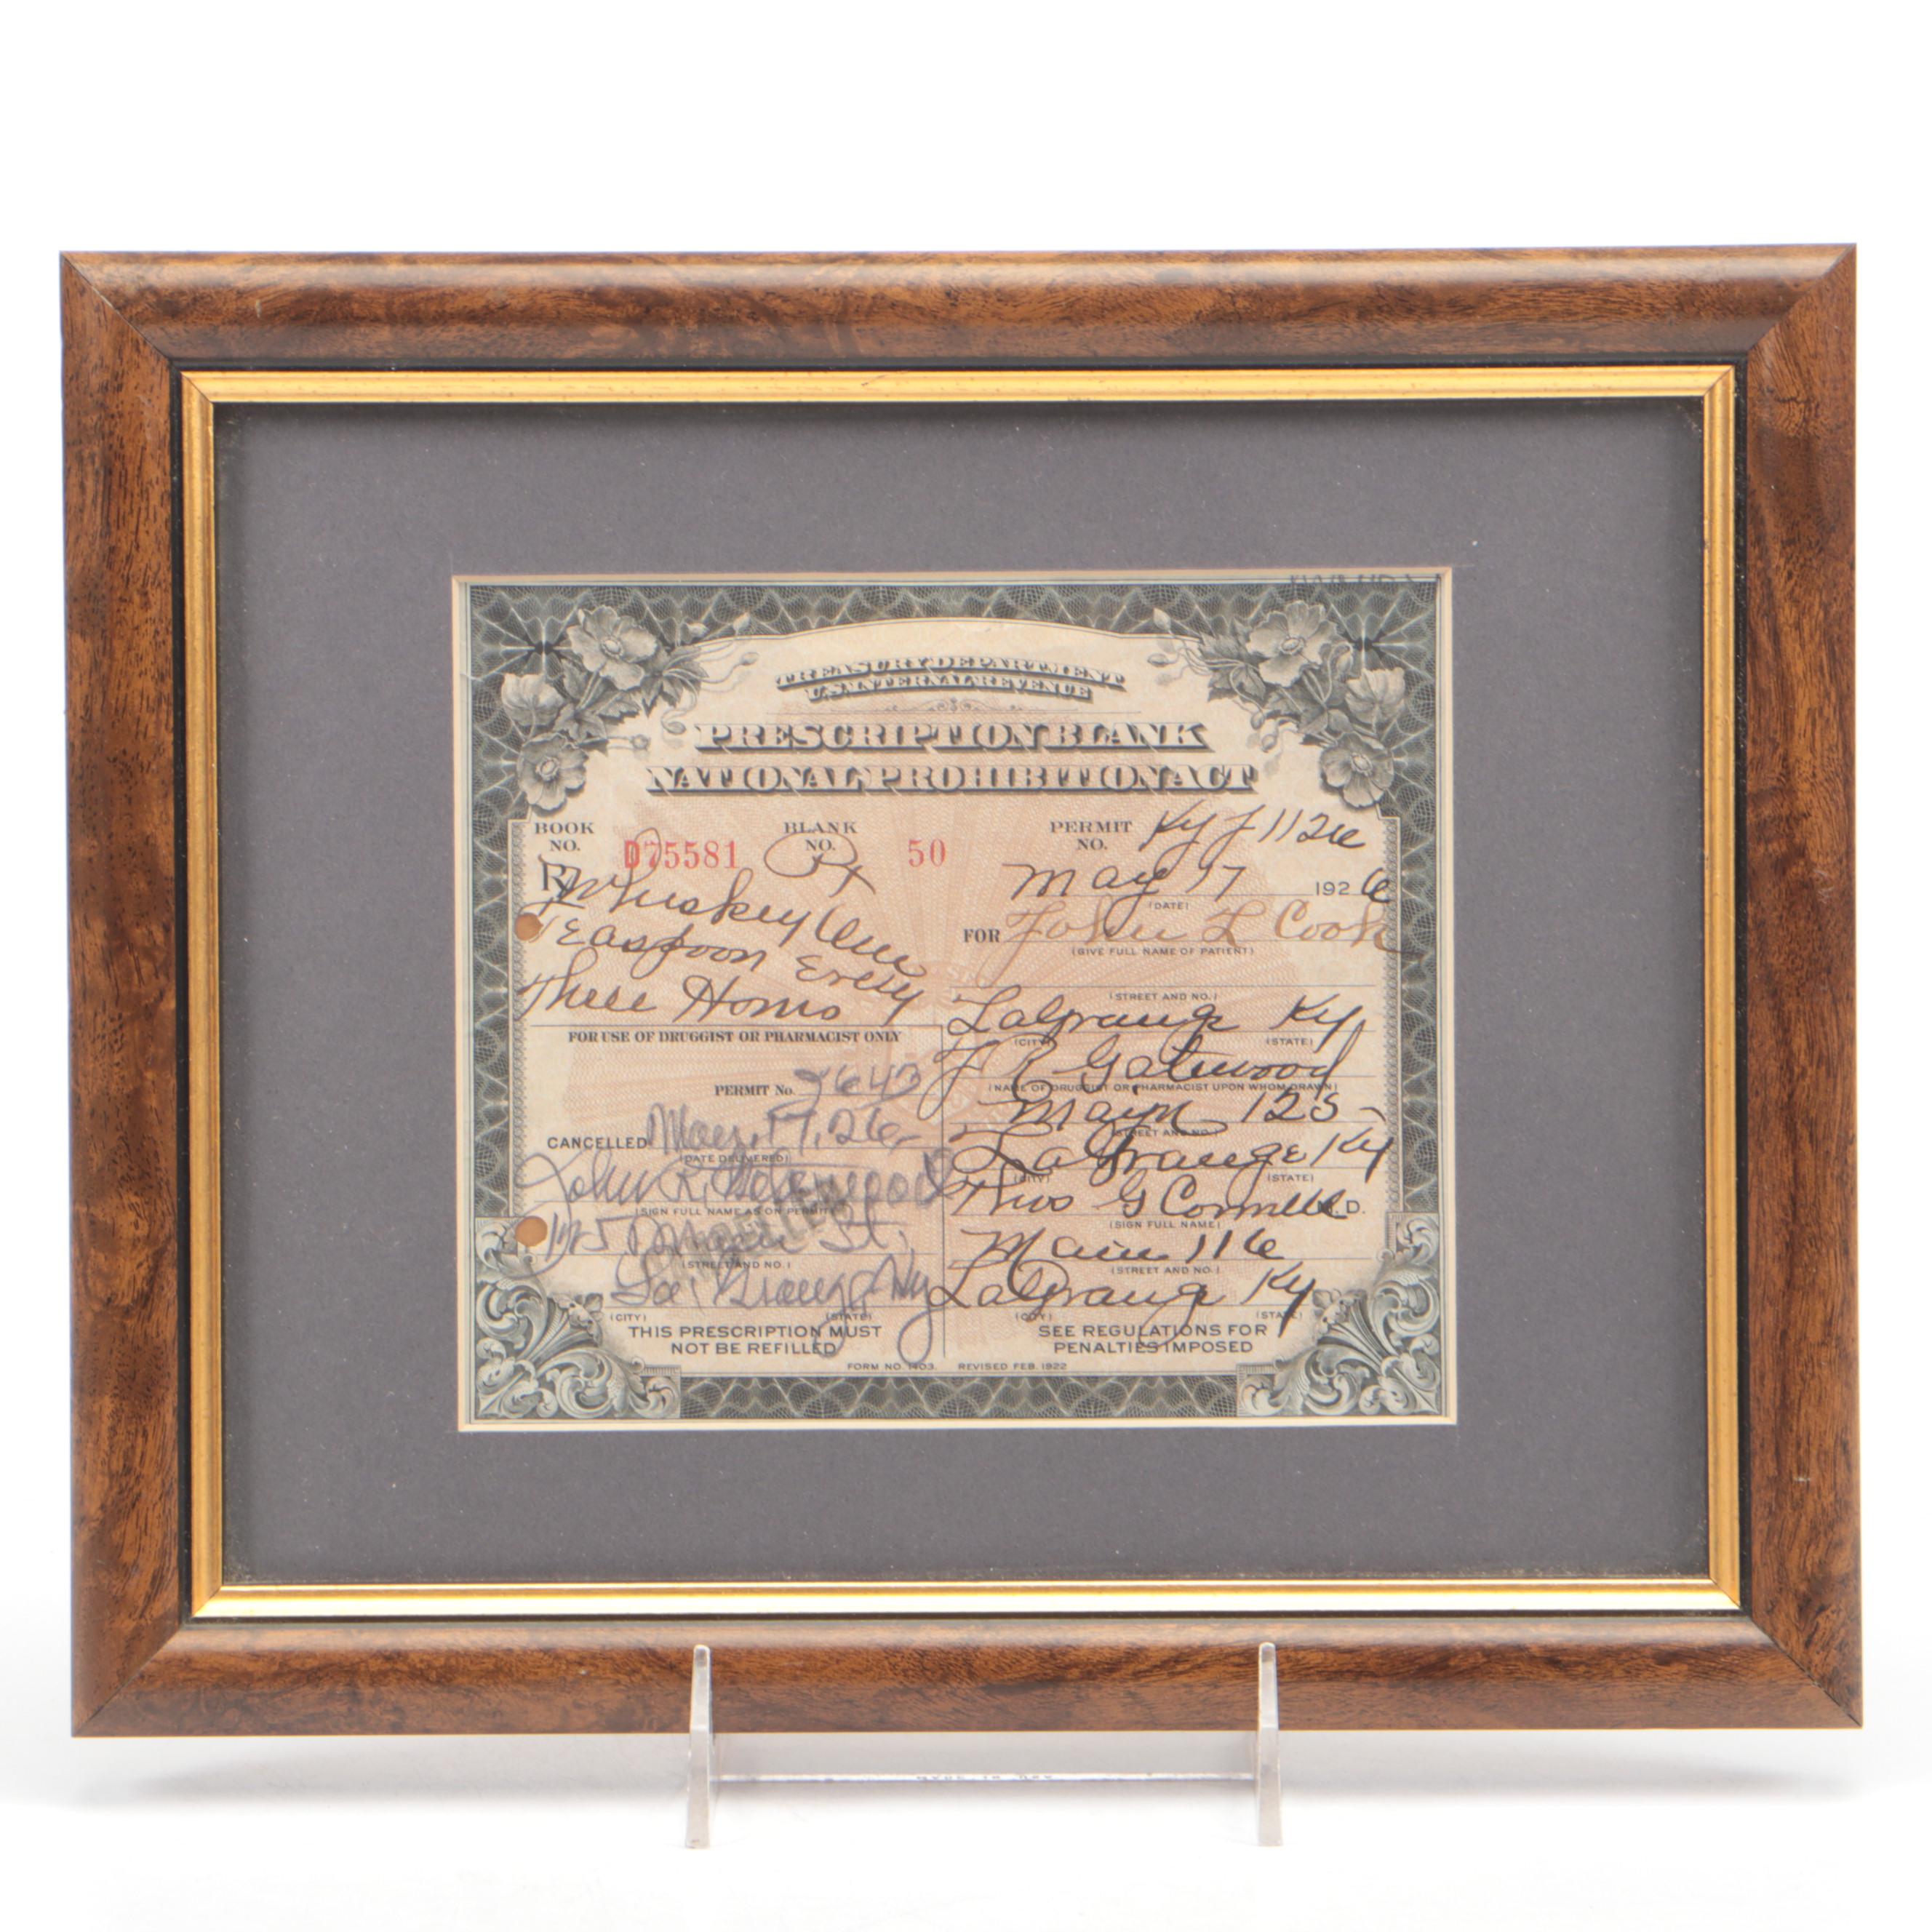 TREASURY DEPARTMENT
U.S. INTERNAL REVENUE
PRESCRIPTION BLANK
NATIONAL PROHIBITION ACT
BOOK NO. D75581 BLANK NO. 50 PERMIT NO. Ky J 1126
Rx
Whiskey One
Teaspoon Every
Three Hours
May 17 1926
(DATE)
FOR John L Cook
(GIVE FULL NAME OF PATIENT)
(STREET AND NO.)
LaGrange Ky
(CITY) (STATE)
J R Gatewood
(NAME OF DRUGGIST OR PHARMACIST UPON WHOM DRAWN)
Main 125
(STREET AND NO.)
LaGrange Ky
(CITY) (STATE)
Thos G Connell M.D.
(SIGN FULL NAME)
Main 116
(STREET AND NO.)
LaGrange Ky
(CITY) (STATE)
SEE REGULATIONS FOR
PENALTIES IMPOSED
FOR USE OF DRUGGIST OR PHARMACIST ONLY
PERMIT No. 2643
CANCELLED May. 17, 26
(DATE DELIVERED)
John R. Gatewood
(SIGN FULL NAME AS ON PERMIT)
CANCELLED
125 Main St,
(STREET AND NO.)
La, Grange, Ky
(CITY) (STATE)
THIS PRESCRIPTION MUST
NOT BE REFILLED
FORM NO. 1403. REVISED FEB. 1922